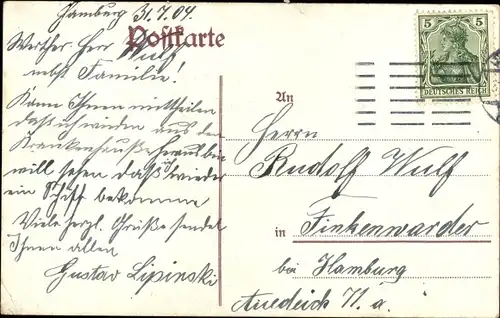 Hamburg 31.7.04.
Postkarte
Werther Herr Wulf
nebst Familie!
Kann Ihnen mittheilen
daß ich wieder aus den
Krankenhause heraus bin
will sehen daß ich wieder
ein Schiff bekomme
Viele herzl. Grüße sendet
Ihnen allen
Gustav Lipinski
5 5
DEUTSCHES REICH
An
Herrn
Rudolf Wulf
in Finkenwarder
bei Hamburg
Auedeich 71. a.